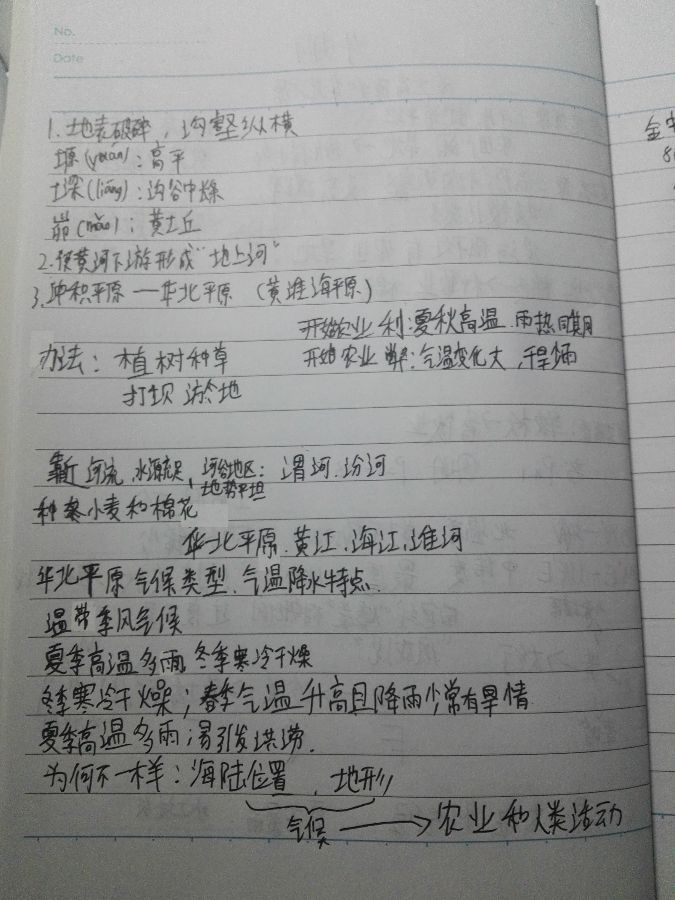 No.
Date
1. 地表破碎，沟壑纵横
塬(yuán)：高平
墚(liáng)：沟谷中燥
峁(mǎo)：黄土丘
2. 使黄河下游形成“地上河”
3. 冲积平原—华北平原（黄淮海平原）
开始农业 利：夏秋高温 雨热同期
办法：植树种草 开始农业 弊：气温变化大，干旱
打坝淤地
靠近河流，水源充足，河谷地区：渭河、汾河
地势平坦
种冬小麦和棉花
华北平原、黄江、海江、淮河
华北平原气候类型、气温降水特点.
温带季风气候
夏季高温多雨，冬季寒冷干燥
冬季寒冷干燥；春季气温升高且降雨少常有旱情
夏季高温多雨；易引发洪涝.
为何不一样：海陆位置、地形
气候 → 农业和人类活动